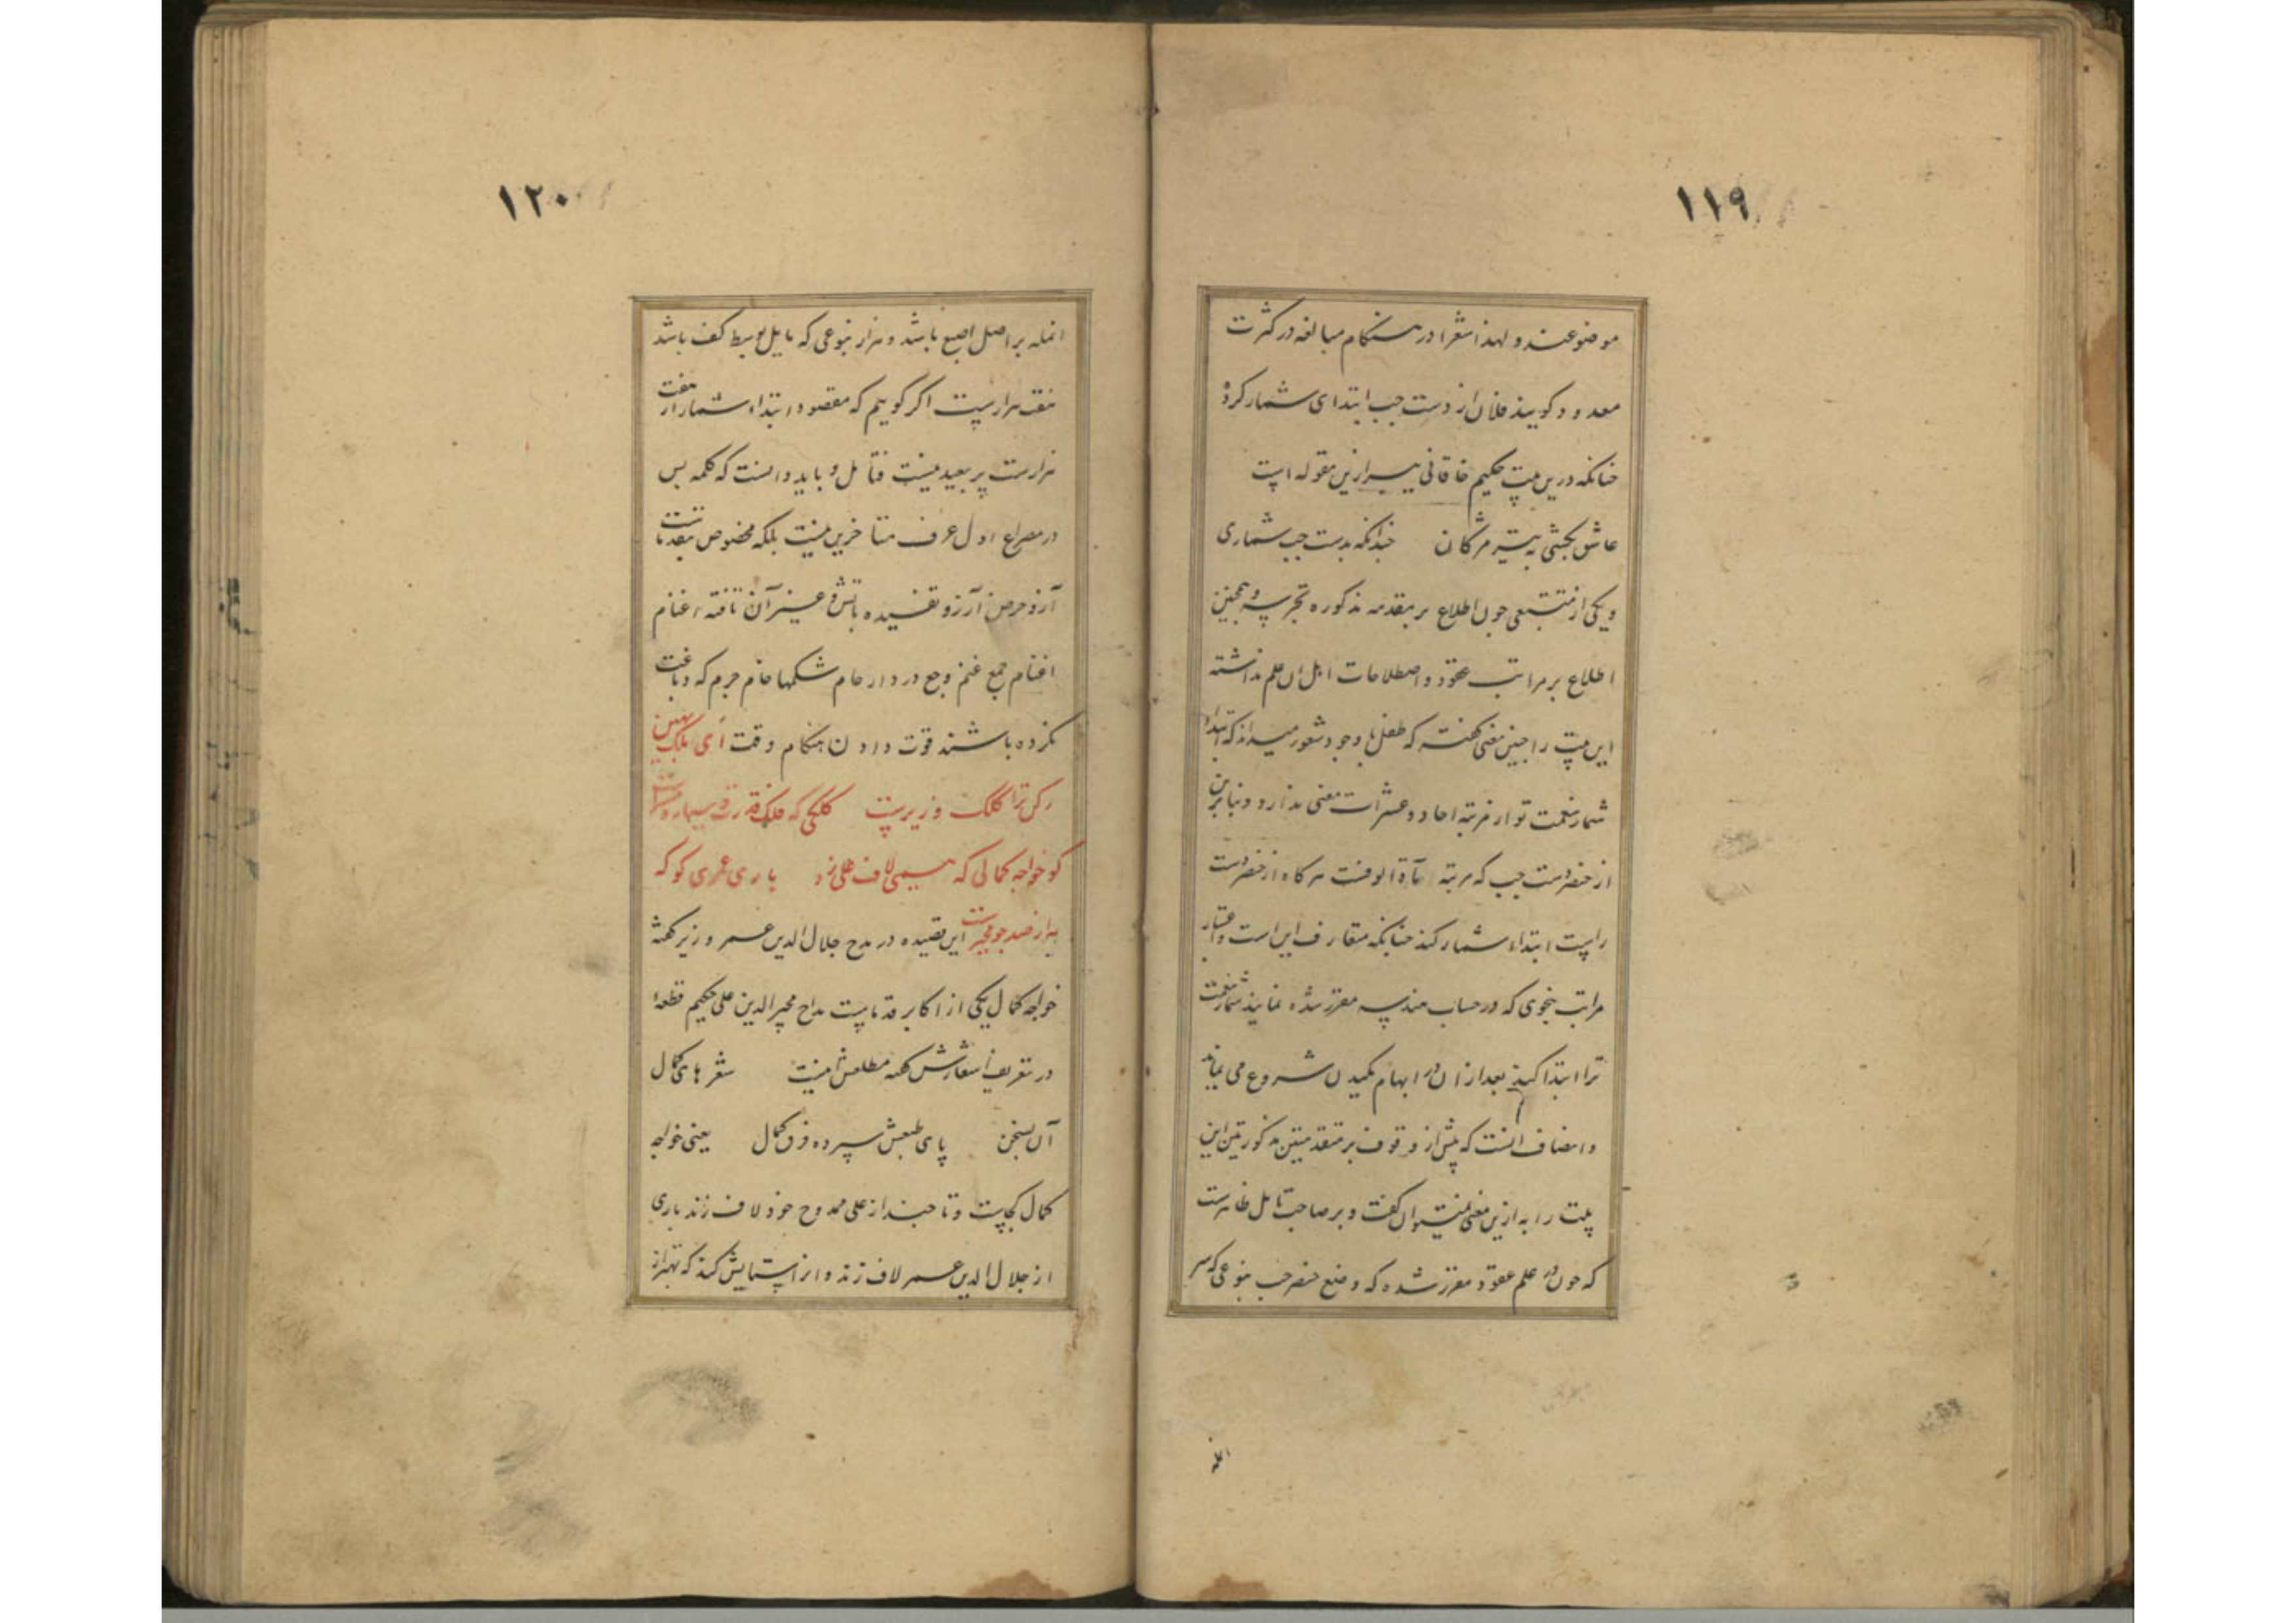 ۱۱۹
موضوعند و لهذا شعرا در هنکام مبالغه در کثرت
معدود کویند فلان از دست چب ابتدای شمار کرد
جنانکه درین بیت حکیم خاقانی نیز ازین مقوله است
عاشق بکشی به تیر مژکان جندانکه بدست جب شماری
و یکی از متتبعی جون اطلاع بر مقدمه مذکوره و همجنین
اطلاع بر مراتب عقود و اصطلاحات اهل ان علم نداشته
این بیت را جنین معنی کفته که طفل با وجود شعور میداند که ابتداء
شمار نعمت تو از مرتبه احاد و عشرات معنی ندارد و بنا برین
از خنصر دست جب که مرتبه الوفست هر کاه از خنصر دست
راست ابتداء شمار کند جنانکه متعارف این است و اعتبار
مراتب بنحوی که در حساب هندسه مقرر شده نمایند شمار نعمت
ترا ابتدا کند بعد ازان در ابهام مکیدن شروع می نماید
و انصاف انست که پیش از وقوف بر مقدمتین مذکورتین این
بیت را به ازین معنی نمیتوان کفت و بر صاحب تامل ظاهرست
که جون در علم عقود مقرر شده که وضع خنصر جب بنوعی که سر
انمله
۱۲۰
انمله بر اصل اصبع باشد هزار بنوعی که مایل بوسط کف باشد
هفت هزارست اکر کوییم که مقصود ابتداء شمار از هفت
هزارست پر بعید نیست فتامل و باید دانست که کلمه بس
در مصراع اول عرف متاخرین نیست بلکه مخصوص بقدماست
آز و حرص آرزو تفسیده باتش و غیر آن تافته اغنام
اغنام جمع غنم وجع درد ارحام شکمها خام جرم که دباغت
نکرده باشند قوت دادن هنکام وقت ای ملک بهین
رکن ترا کلک وزیرست کلکی که فلک قدرت و سیاره
کو خواجه کمالی که همی لاف علی زد باری عمری کو که
به از صد جو مجیرست این قصیده در مدح جلال الدین عمر وزیر کفته
خواجه کمال یکی از اکابر قدماست مداح مجیر الدین علی حکیم قطعه
در تعریف اشعارش کفته مطلعش اینست شعر های کمال
آن بسخن پای طبعش سپرده فرق کمال یعنی خواجه
کمال کجاست و تا جند از علی ممدوح خود لاف زند باری
از جلال الدین عمر لاف زند و او را ستایش کند که بهتر از